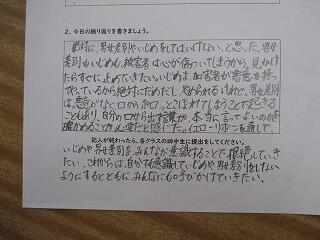 2．今日の振り返りを書きましょう。
絶対に、男女差別やいじめをしてはいけない、と思った。男女
差別もいじめも、被害者は心が傷ついてしまうから、見かけ
たらすぐに止めていきたい。いじめは、加害者が悪意を持っ
てやっているから絶対にだめだし、やめられるけれど、男女差別
は、悪意がなく口からポロッとこぼれてしまうことで起きる
こともあり、自分の口から出す言葉が、本当に言ってよいのかを
確かめることが必要だと感じた。イエローリボンを通して、
記入が終わったら、各クラスの四中生に提出をしてください。
いじめや男女差別を、みんなが意識することで根絶していき
たい。これからは、自分でも意識していじめや男女差別をしない
ようにするとともに、みんなにも呼びかけていきたい。